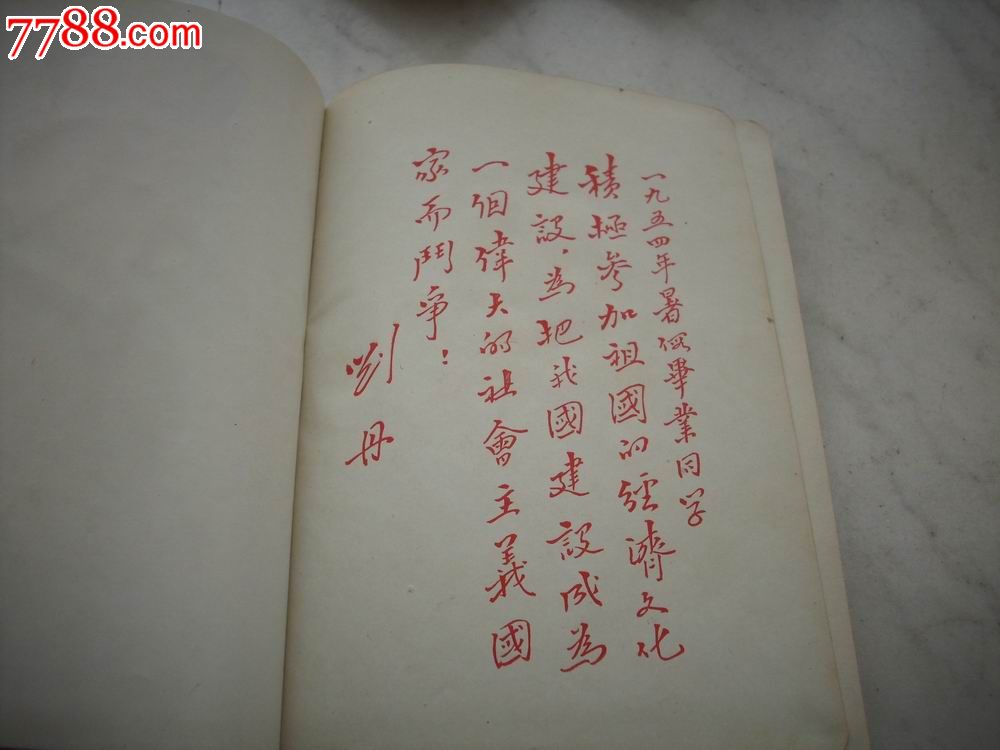 7788.com
一九五四年暑假畢業同学
積極參加祖國的經濟文化
建設，為把我國建設成為
一個偉大的社會主義國
家而鬥爭！
刘丹